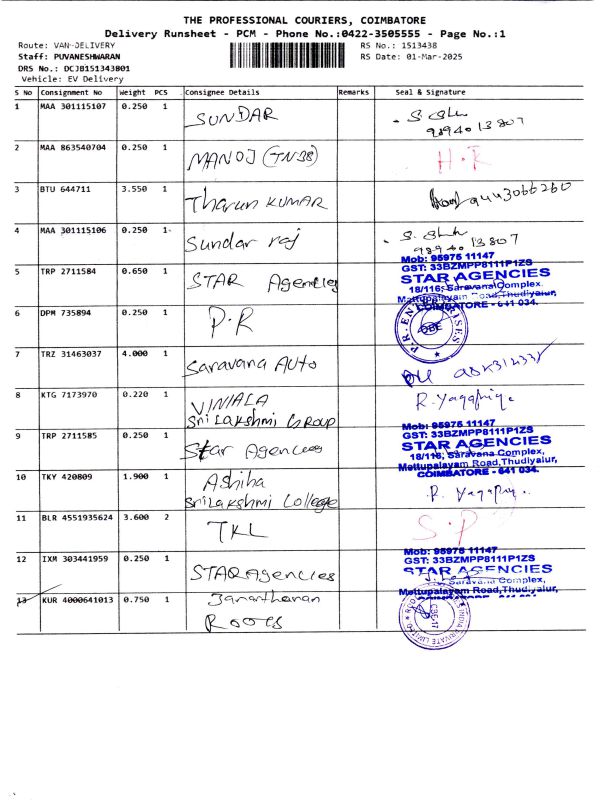 THE PROFESSIONAL COURIERS, COIMBATORE
Delivery Runsheet - PCM - Phone No.:0422-3505555 - Page No.:1
Route: VAN-DELIVERY RS No.: 1513438
Staff: PUVANESHWARAN RS Date: 01-Mar-2025
DRS No.: DCJB151343801
Vehicle: EV Delivery
S No Consignment No Weight PCS Consignee Details Remarks Seal & Signature
1 MAA 301115107 0.250 1 SUNDAR
98940 13807
2 MAA 863540704 0.250 1 MANOJ (TN38) H.R
3 BTU 644711 3.550 1 Tharun KUMAR 9443066260
4 MAA 301115106 0.250 1 Sundar raj
98940 13807
Mob: 95975 11147
GST: 33BZMPP8111P1ZS
5 TRP 2711584 0.650 1 STAR Agencies STAR AGENCIES
18/116, Saravana Complex.
Mettupalayam Road, Thudiyalur,
COIMBATORE - 641 034.
6 DPM 735894 0.250 1 P.R P.R. ENTERPRISES
CBE
7 TRZ 31463037 4.000 1 Saravana AUTO
8 KTG 7173970 0.220 1
Sri Lakshmi Group
Mob: 95975 11147
GST: 33BZMPP8111P1ZS
9 TRP 2711585 0.250 1 Star Agencies STAR AGENCIES
18/116, Saravana Complex,
Mettupalayam Road, Thudiyalur,
COIMBATORE - 641 034.
10 TKY 420809 1.900 1
Sri Lakshmi College
11 BLR 4551935624 3.600 2 TKL S.P
Mob: 95975 11147
GST: 33BZMPP8111P1ZS
12 IXM 303441959 0.250 1 STAR Agencies STAR AGENCIES
Saravana Complex,
Mettupalayam Road, Thudiyalur,
COIMBATORE - 641 034.
13 KUR 4000641013 0.750 1 Janantharan
ROOTS
INDIA PRIVATE LIMITED
CBE-17